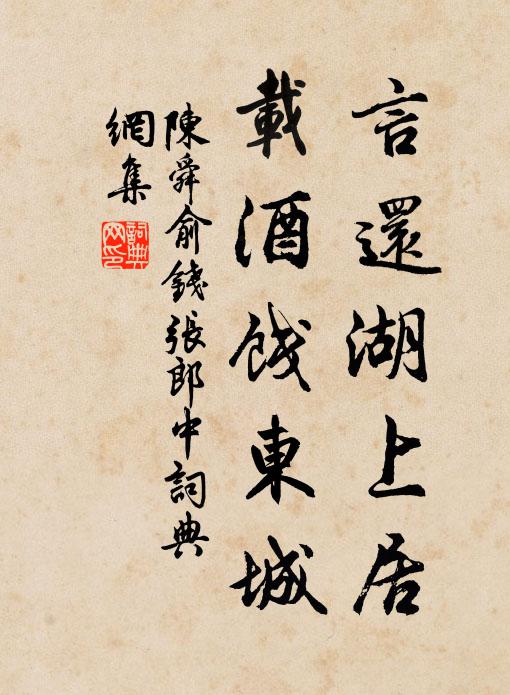 言還湖上居
載酒餞東城
陳舜俞錢張郎中詞典
網集
詞典
网印